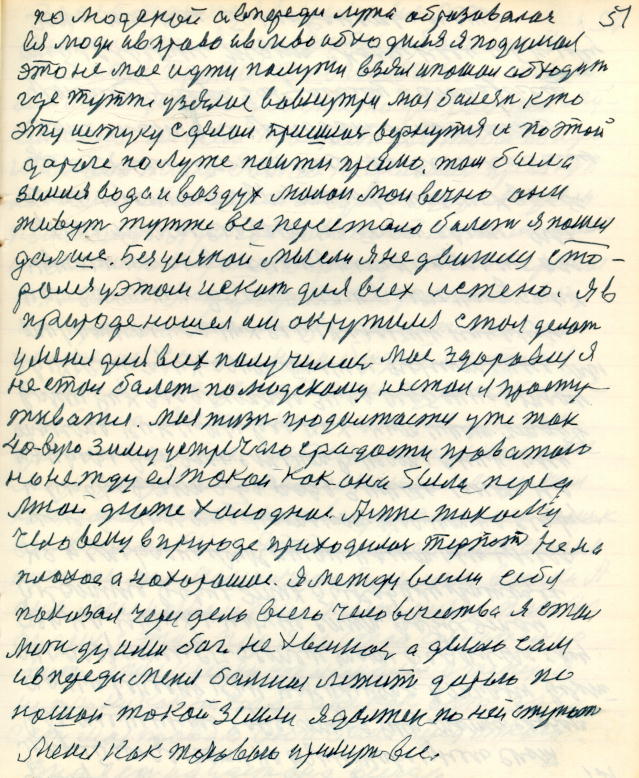 по людской а впереди лужа образовалась 51
ея люди в право в лево обходили я подумал
это не мое идти по лужи взял и пошол обходит
где тут же узялас вовнутри моя болезн кто
эту штуку сделал пришлос вернутся и по этой
дароге по луже пойти прямо. там была
земля вода и воздух милой мои вечно они
живут тут же все перестало болет я пошел
дальше. Без
я не двигаюс сто-
искат для всех истено. я в
природе нашел им окружился стал делат
у меня для всех получилос мое здоровия я
не стал болет по людскому не стал я просту-
живатся. Моя жизн продолжается уже так
зиму устречаю с радости
такой как она была перед
мной даже холодная
такому
человеку в природе приходилос терпет не на
плохое а на хорошие. Я между всеми себя
показал через дело всего человечества я стал
между ими бог. не хвалюс а делаю сам
и впереди меня
лежит дарога по
нашой такой земли я должен по ней ступат
меня как такового примут все.